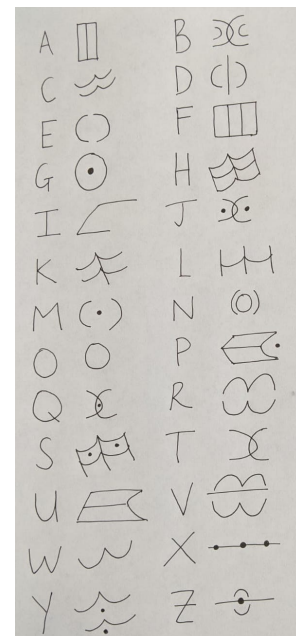 A B
C D
E F
G H
I J
K L
M N
O P
Q R
S T
U V
W X
Y Z